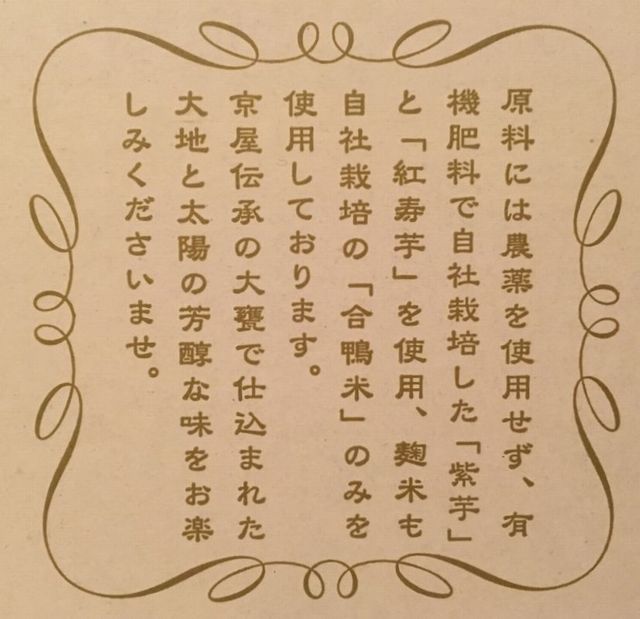 原料には農薬を使用せず、有
機肥料で自社栽培した「紫芋」
と「紅寿芋」を使用、麹米も
自社栽培の「合鴨米」のみを
使用しております。
京屋伝承の大甕で仕込まれた
大地と太陽の芳醇な味をお楽
しみくださいませ。